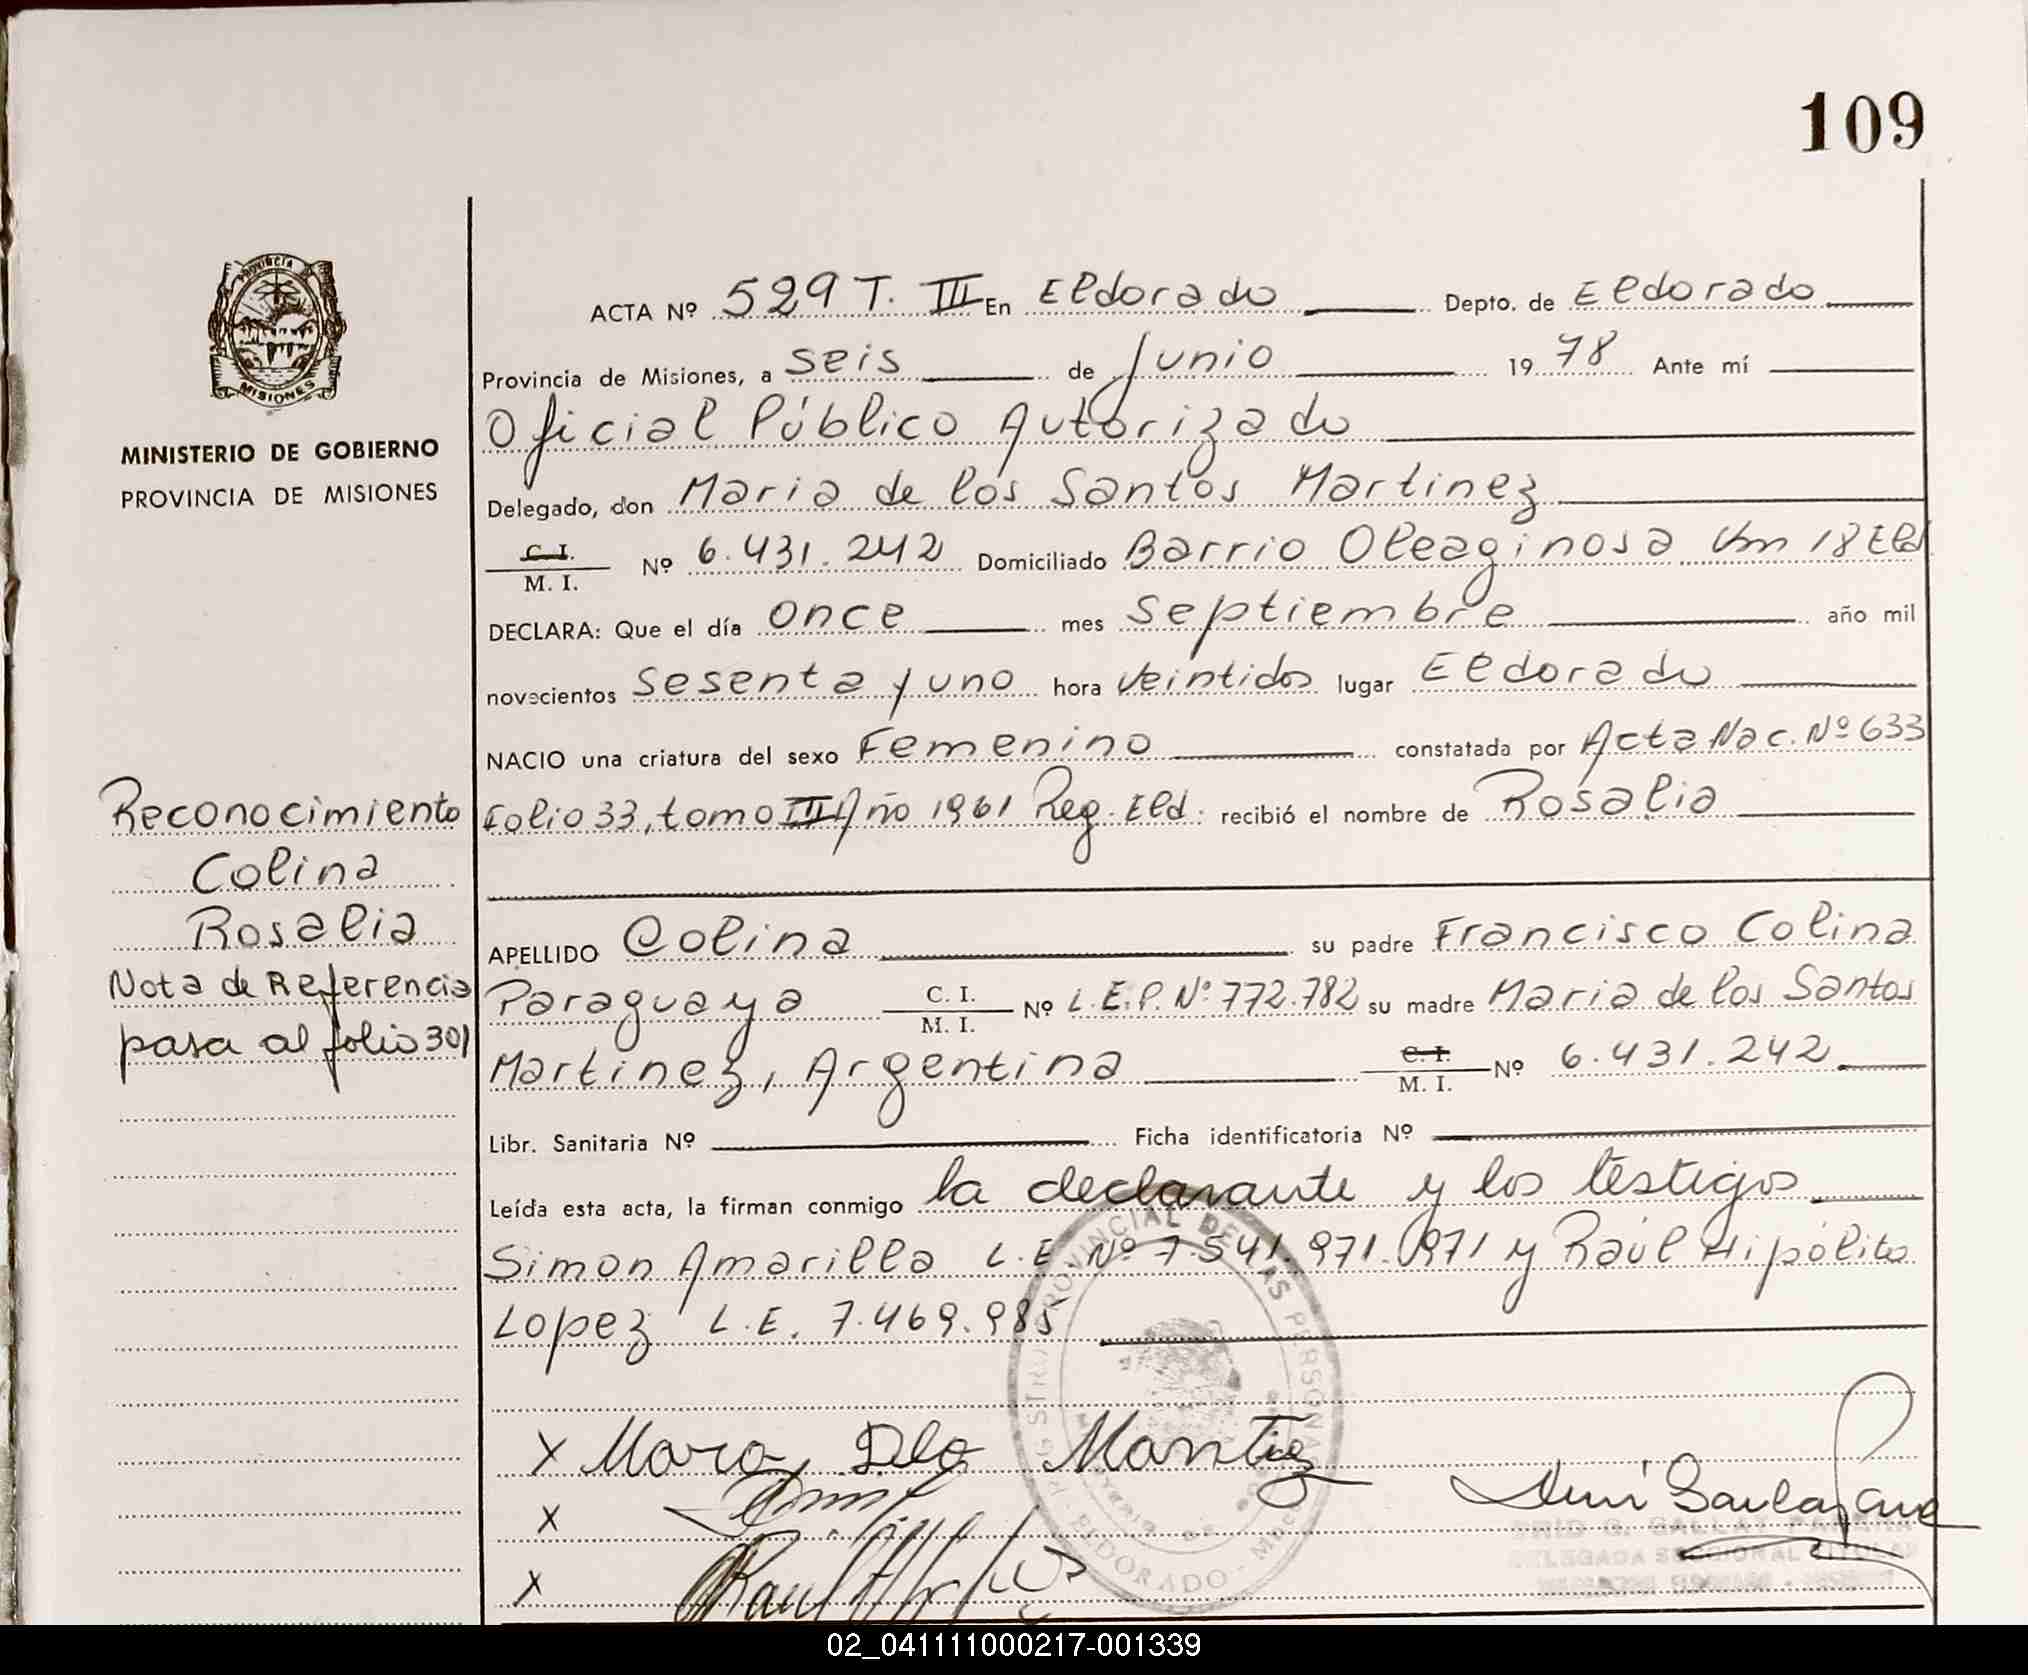 109
PROVINCIA
MISIONES
MINISTERIO DE GOBIERNO
PROVINCIA DE MISIONES
ACTA Nº 529 T. III En Eldorado Depto. de Eldorado
Provincia de Misiones, a seis de Junio 19 78 Ante mí
Oficial Público Autorizado
Delegado, don Maria de los Santos Martinez
C. I.
M. I. Nº 6.431.242 Domiciliado Barrio Oleaginosa Km 18 Eld
DECLARA: Que el día once mes Septiembre año mil
novecientos sesenta y uno hora veintidos lugar Eldorado
NACIO una criatura del sexo Femenino constatada por Acta Nac. Nº 633
Folio 33, tomo III Año 1961 Reg. Eld. recibió el nombre de Rosalia
APELLIDO Colina su padre Francisco Colina
Paraguaya C. I. M. I. Nº L.E.P. Nº 772.782 su madre Maria de los Santos
Martinez, Argentina C. I. M. I. Nº 6.431.242
Libr. Sanitaria Nº Ficha identificatoria Nº
Leída esta acta, la firman conmigo la declarante y los testigos
Simon Amarilla L.E. Nº 7.541.971.971 y Raúl Hipólito
Lopez L.E. 7.469.985
Reconocimiento
Colina
Rosalia
Nota de Referencia
pasa al folio 301
X
X
X
PROVINCIAL DE LAS PERSONAS
ELDORADO
02_041111000217-001339